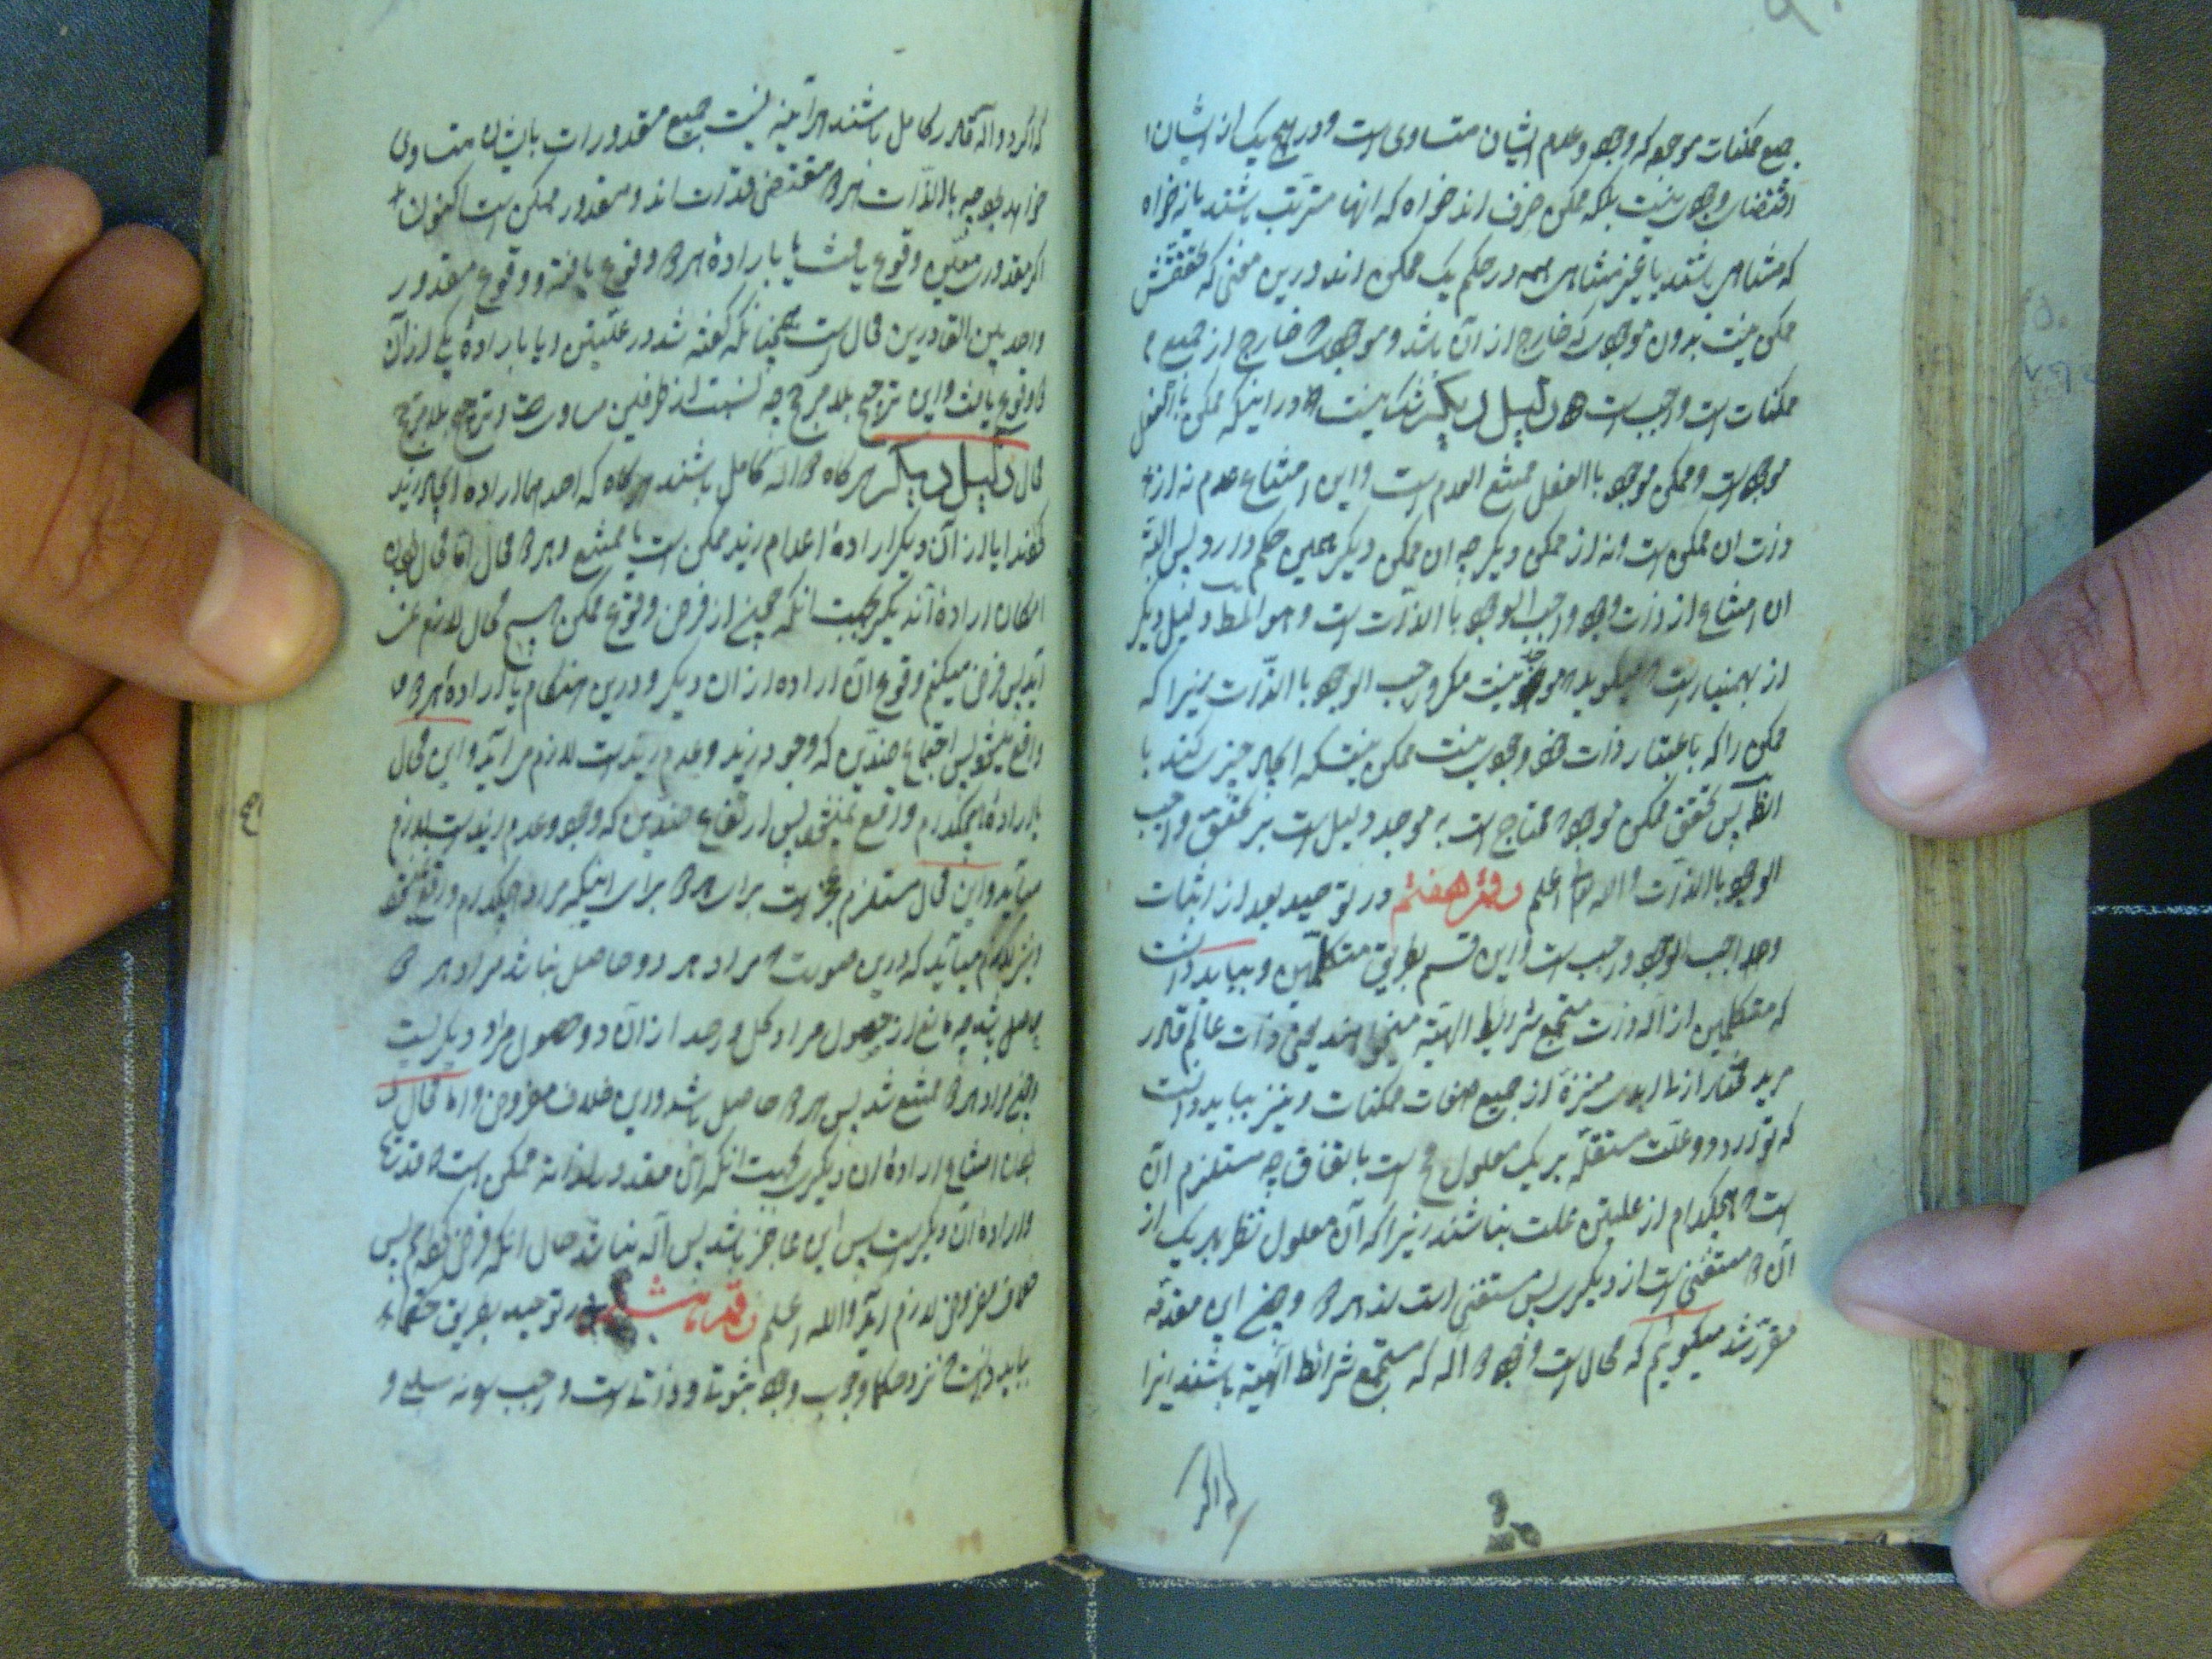 جمیع ممکنات موجوده که وجود و عدم ایشان متساوی است و در هیچ یک از ایشان
اقتضای وجود نیست بلکه ممکن صرف اند خواه که انها مترتب باشند یا نه خواه
که متناهی باشند یا غیر متناهی همه در حکم یک ممکن اند درین معنی که تحققش
ممکن نیست بدون موجودی که خارج از آن باشد و موجود خارج از جمیع
ممکنات است واجب است دلیل دیگر شک نیست در اینکه ممکن بالفعل
موجود است و ممکن موجود باالفعل ممتنع العدم است و این امتناع عدم نه از
ذات ان ممکن است و نه از ممکن دیگر چه ان ممکن دیگر همین حکم دارد پس البته
ان امتناع از ذات وجود واجب الوجود باالذات است و هو المط دلیل دیگر
از بهمنیار است میگوید موجود نیست مگر واجب الوجود باالذات زیرا که
ممکن را که باعتبار ذات خود وجود نیست ممکن نیست که ایجاد چیزی کند با
انظ پس تحقق ممکن موجود محتاج است به موجد دلیل است بر تحقق واجب
الوجود باالذات والله اعلم دفتر هفتم در توحید بعد از اثبات
واجب الوجود واجب است و این قسم بطریق متکلمین و بباید دانست
که متکلمین از اله ذات مستجمع شرایط الهیة میخواهند یعنی ذات عالم قادر
مرید مختار ازلی ابدی منزه از جمیع صفات ممکنات و نیز بباید دانست
که توارد دو علت مستقله بر یک معلول مح است باتفاق چه مستلزم آن
است هیچکدام از علتین علت نباشند زیرا که آن معلول نظر بهر یک از
آن مستغنی است از دیگری پس مستغنی است از هر دو و چون این مقدمه
مقرر شد میگوئیم که محال است وجود دو اله که مستجمع شرائط الهیة باشند زیرا
که اگر
که اگر دو اله قادر کامل باشند هر آینه نسبت جمیع مقدورات باایشان متساوی
خواهد بود چه باالذات هر دو مقتضی قدرت اند و مقدور ممکن است اکنون
اگر مقدوری معین وقوع یافت یا باراده هر دو وقوع یافته و وقوع مقدور
واحد بین القادرین محال است همچنانکه گفته شد در علتین و یا باراده یکی از آن
دو وقوع یافت و این ترجیح بلا مرجح چه نسبت از طرفین مساویست و ترجیح بلا مرجح
محال دلیل دیگر هر گاه دو اله کامل باشند هر گاه که احدهما اراده ایجاد زید
کند ایا از آن دیگر اراده اعدام زید ممکن است یا ممتنع و هر دو محال اما محال بودن
امکان اراده آن دیگر بجهت انکه چیزی از فرض وقوع ممکن هیچ محال لازم نمی
آید پس فرض میکنم وقوع آن اراده از ان دیگر و درین هنگام یا اراده هر دو
واقع میشود پس اجتماع ضدین که وجود زید و عدم زید است لازم می آید و این محال
یا اراده هیچکدام واقع نمیشود پس ارتفاع ضدین که وجود و عدم زید است لازم
میآید و این محال مستلزم عجز است برای هر دو برای اینکه مراد هیچکدام واقع نشد
و نیز لازم میآید که درین صورت مراد هر دو حاصل نباشد مراد هر دو
حاصل باشد چه مانع از حصول مراد کل واحد از آن دو حصول مراد دیگریست
و چون مراد هر دو ممتنع شد پس هر دو حاصل باشد و این خلاف مفروض و اما محال
بودن امتناع اراده ان دیگری بجهت انکه آن مقدور لذاته ممکن است
و اراده آن دیگریست پس این عاجز باشد پس اله نباشد حال انکه فرض کرده ایم پس
خلاف مفروض لازم آید والله اعلم دفتر هشتم در توحید بطریق حکماء
بباید دانست نزد حکما وجوب وجود ثبوتی و ذاتی است واجب نه سلبی و